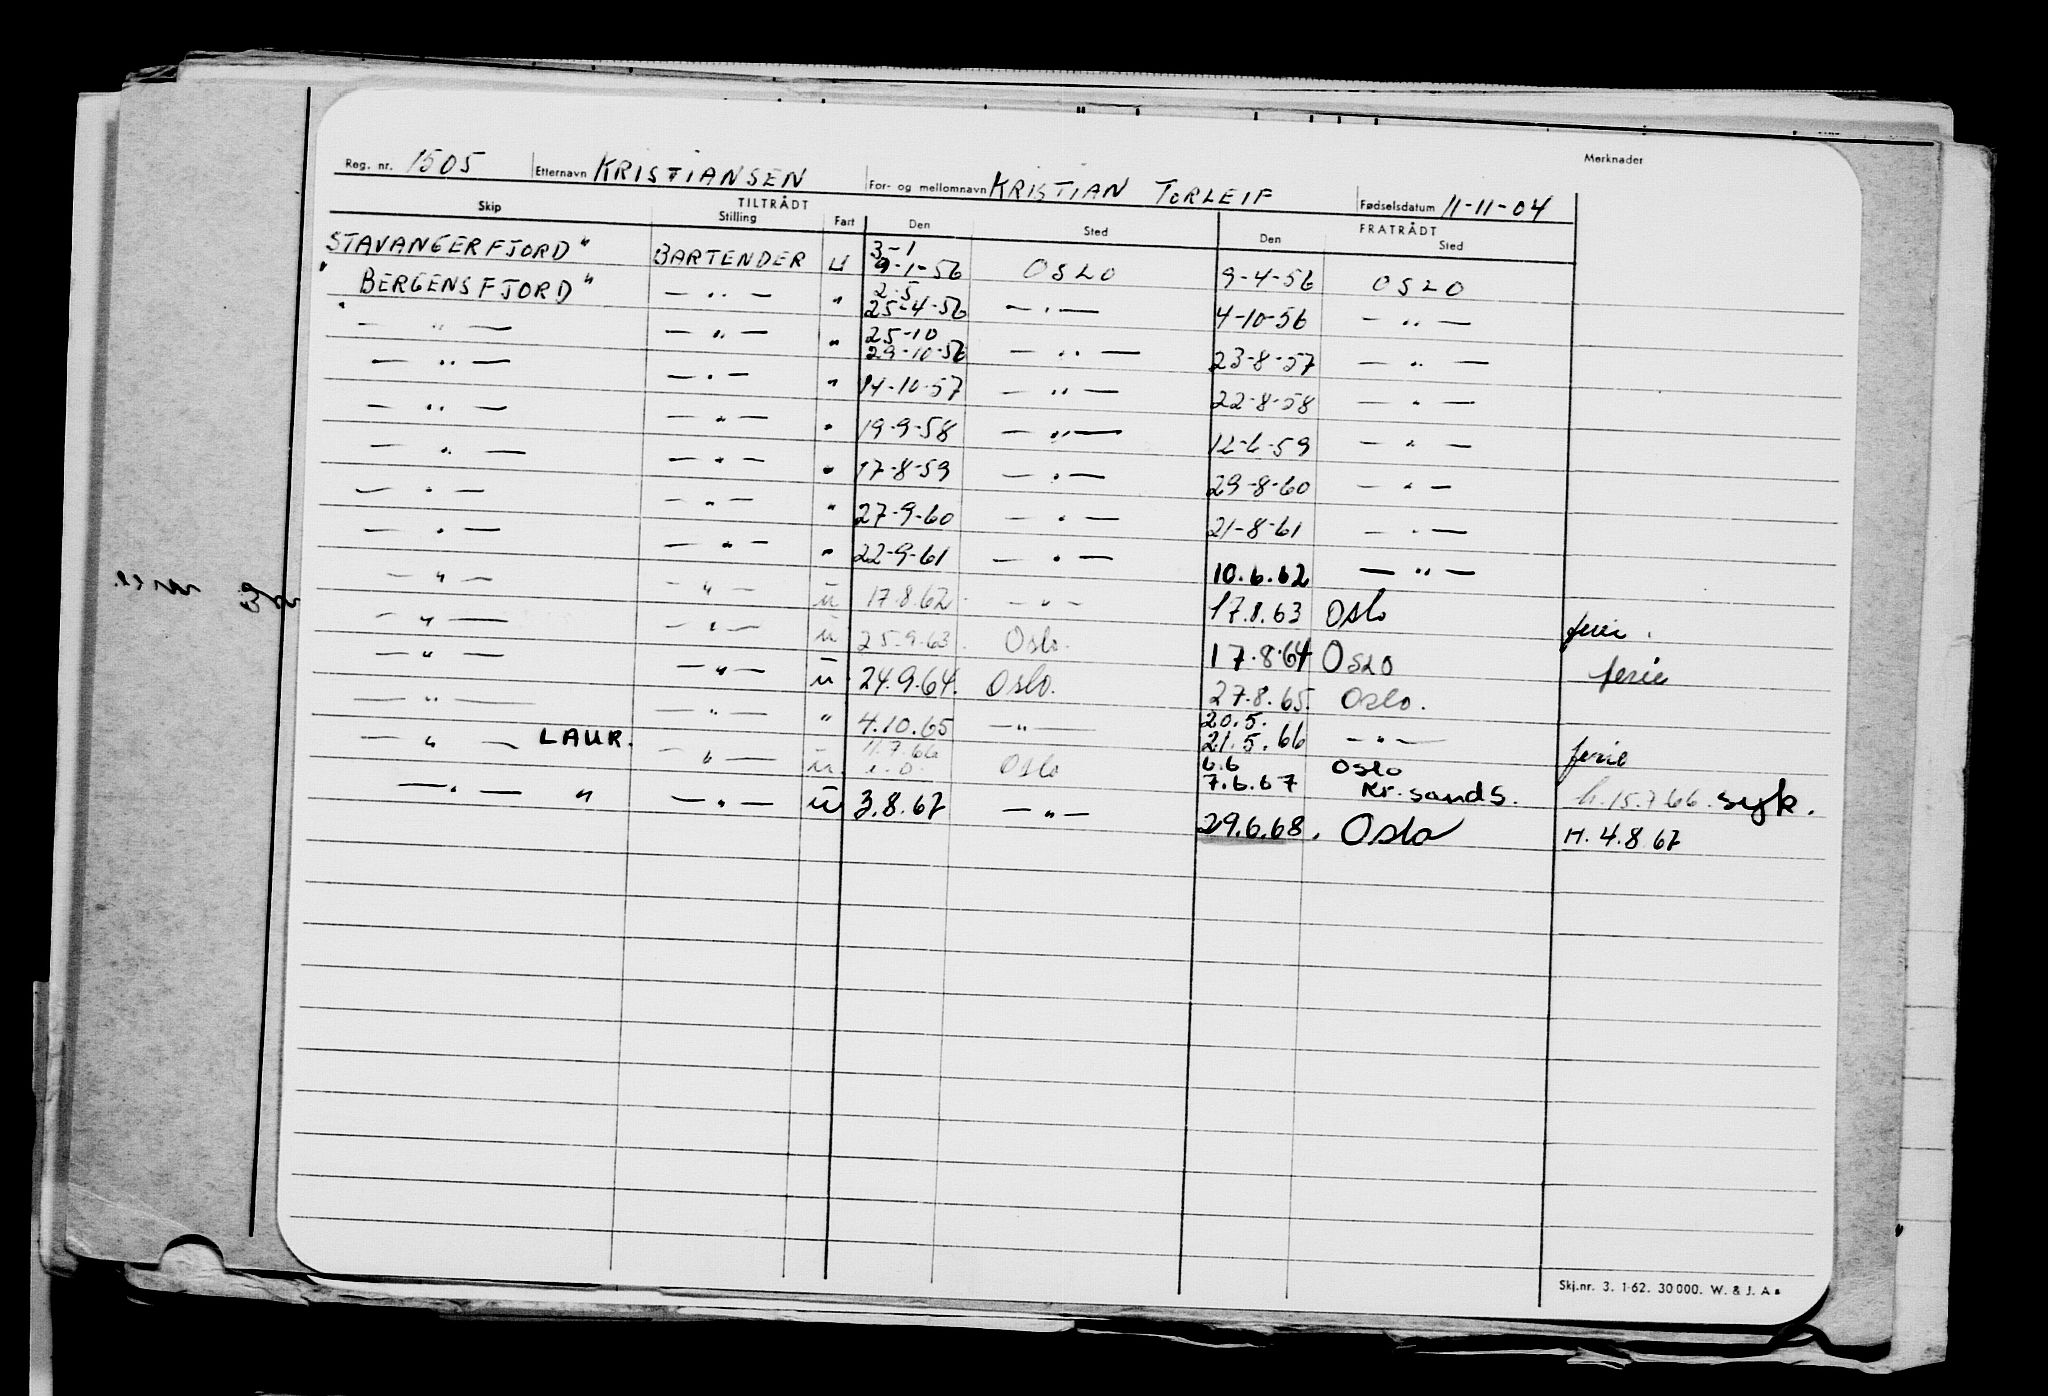 Merknader
Reg. nr. 1505 Etternavn KRISTIANSEN For- og mellomnavn KRISTIAN TORLEIF Fødselsdatum 11-11-04
TILTRÅDT FRATRÅDT
Skip Stilling Fart Den Sted Den Sted
3-1
STAVANGERFJORD" BARTENDER U 9-1-56 OSLO 9-4-56 OSLO
2-5
" BERGENSFJORD" — " — " 25-4-56 — " — 4-10-56 — " —
25-10
" — " — — " — " 29-10-56 — " — 23-8-57 — " —
— " — — " — " 14-10-57 — " — 22-8-58 — " —
— " — — " — " 19-9-58 — " — 12-6-59 — " —
— " — — " — " 17-8-59 — " — 29-8-60 — " —
— " — — " — " 27-9-60 — " — 21-8-61 — " —
— " — — " — " 22-9-61 — " — 10.6.62 — " —
— " — — " — u 17.8.62 — " — 17.8.63 Oslo ferie.
— " — — " — u 25.9.63. Oslo. 17.8.64 OSLO ferie
— " — — " — u 24.9.64. Oslo. 27.8.65. Oslo.
20.5.
— " — — " — " 4.10.65 — " — 21.5.66 — " — ferie
11.7.66 6.6 OSLO
— " — LAUR. — " — u. Oslo 7.6.67 Kr.sands. h.15.7.66. syk.
— " — " — " — u 3.8.67 — " — 29.6.68. Oslo H. 4.8 67
Skj.nr. 3. 1-62. 30000. W. & J. A s